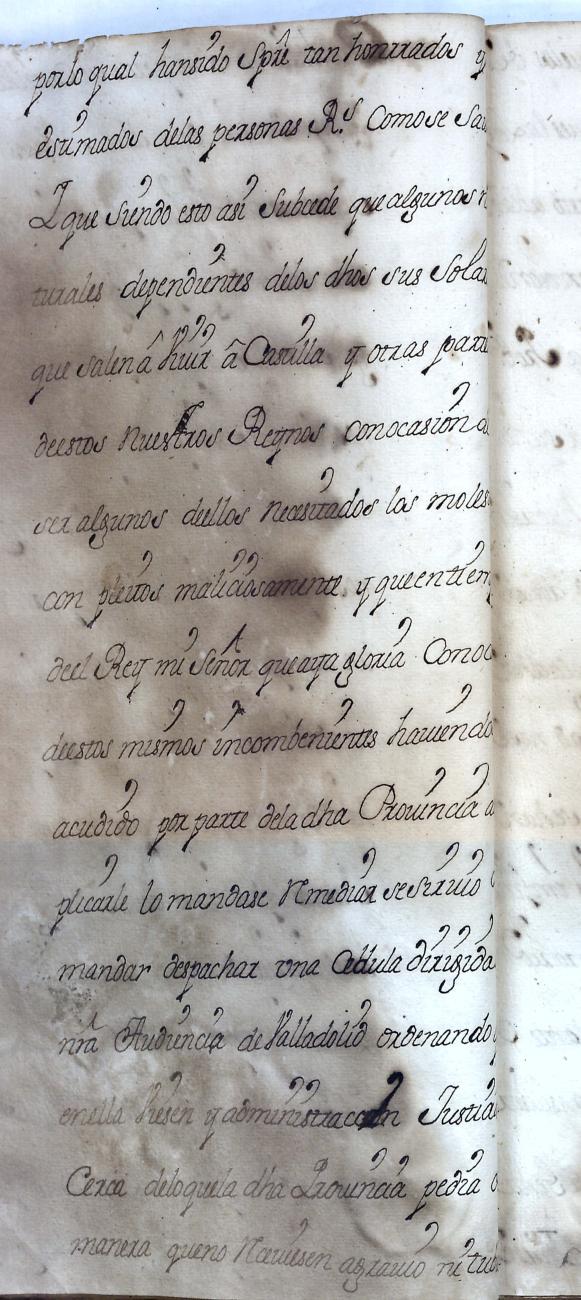 por lo qual han sido Spre tan honrrados y
estimados delas personas R.s Como se Sav
I que siendo esto asi Subcede que algunos n
turales dependientes delos dhos sus Sola
que salen â viuir â Castilla y otras parte
de estos nuestros Reynos con ocasion d
ser algunos dellos necesitados los moles
con pleitos maliciosamente y que en tiem
de el Rey mi Señor que aya gloria Conoc
de estos mismos incombenientes hauiendo
acudido por parte dela dha Prouincia a
plicarle lo mandase Remediar se siruio
mandar despachar vna Cedula dirigida
nrâ Audiencia de Valladolid ordenando
en ella Viesen y administraccion Justia
Cerca de lo que la dha Prouincia pedia
manera que no Recuiesen agrauio ni tub